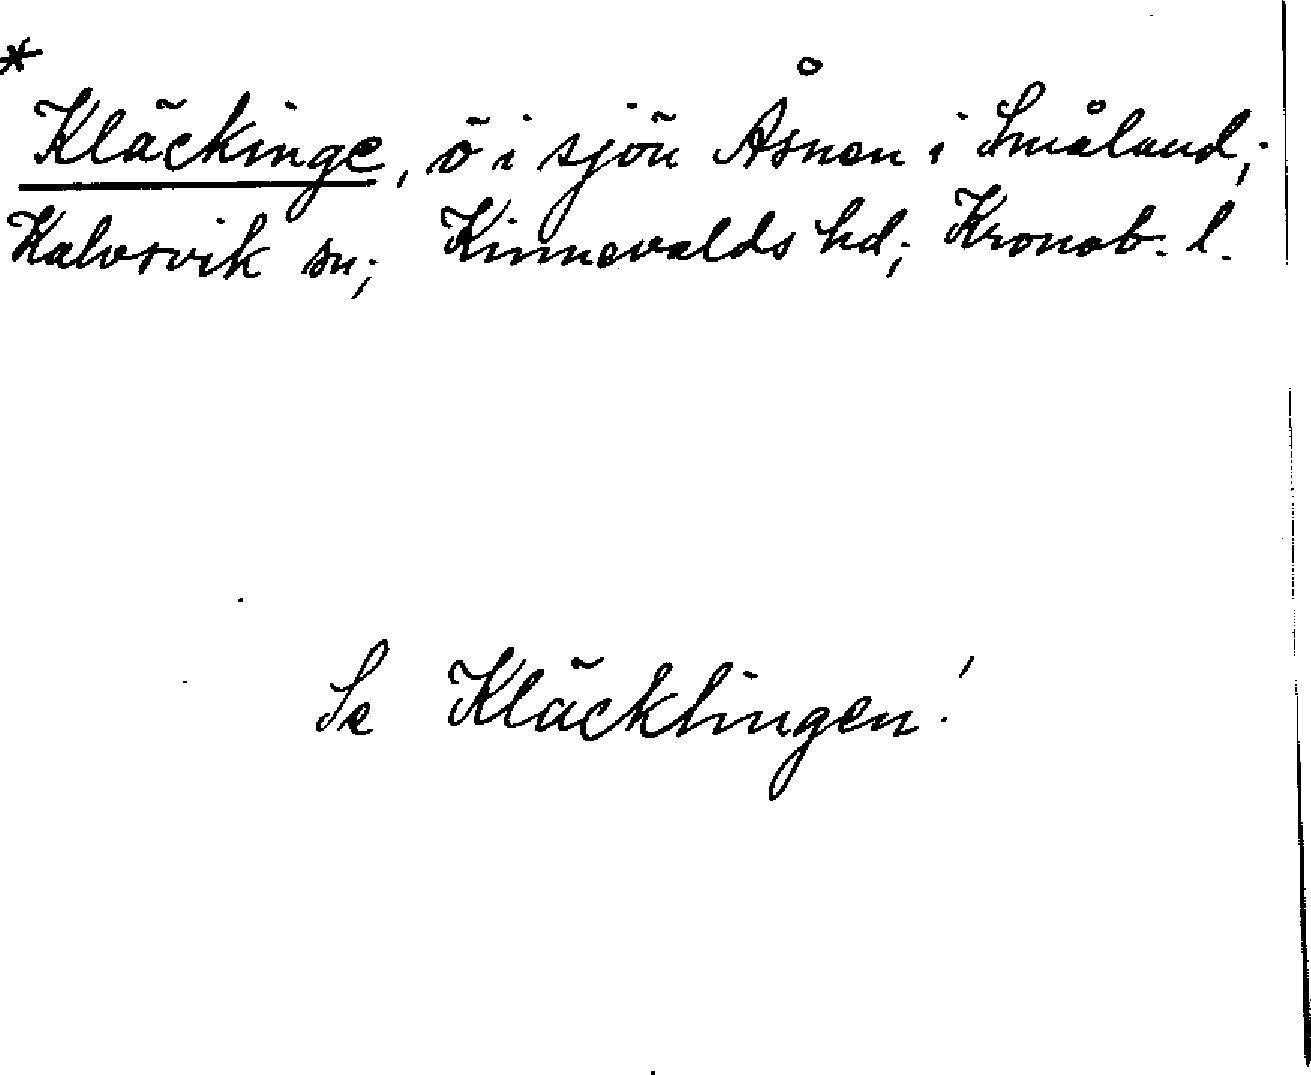 * Kläckinge, ö i sjön Åsnen i Småland;
Kalvsvik sn; Kinnevalds hd; Kronob. l.
Se Kläcklingen!